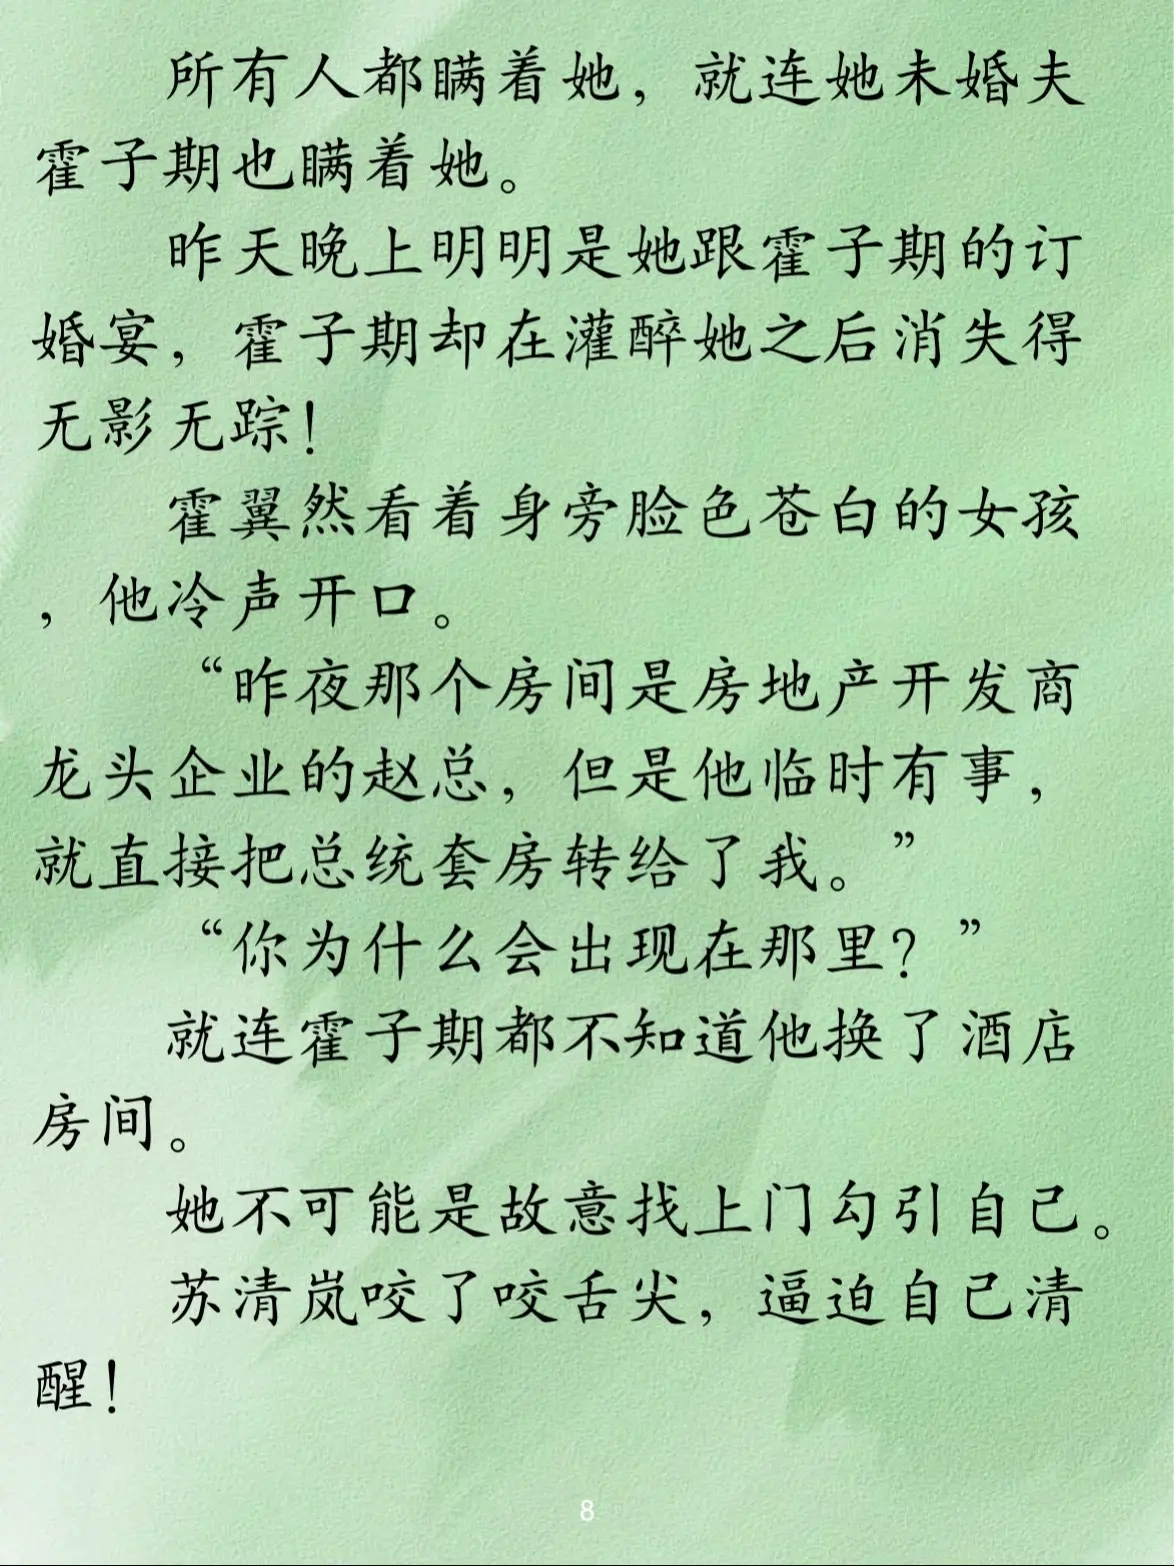 所有人都瞒着她，就连她未婚夫
霍子期也瞒着她。
昨天晚上明明是她跟霍子期的订
婚宴，霍子期却在灌醉她之后消失得
无影无踪！
霍翼然看着身旁脸色苍白的女孩
，他冷声开口。
“昨夜那个房间是房地产开发商
龙头企业的赵总，但是他临时有事，
就直接把总统套房转给了我。”
“你为什么会出现在那里？”
就连霍子期都不知道他换了酒店
房间。
她不可能是故意找上门勾引自己。
苏清岚咬了咬舌尖，逼迫自己清
醒！
8